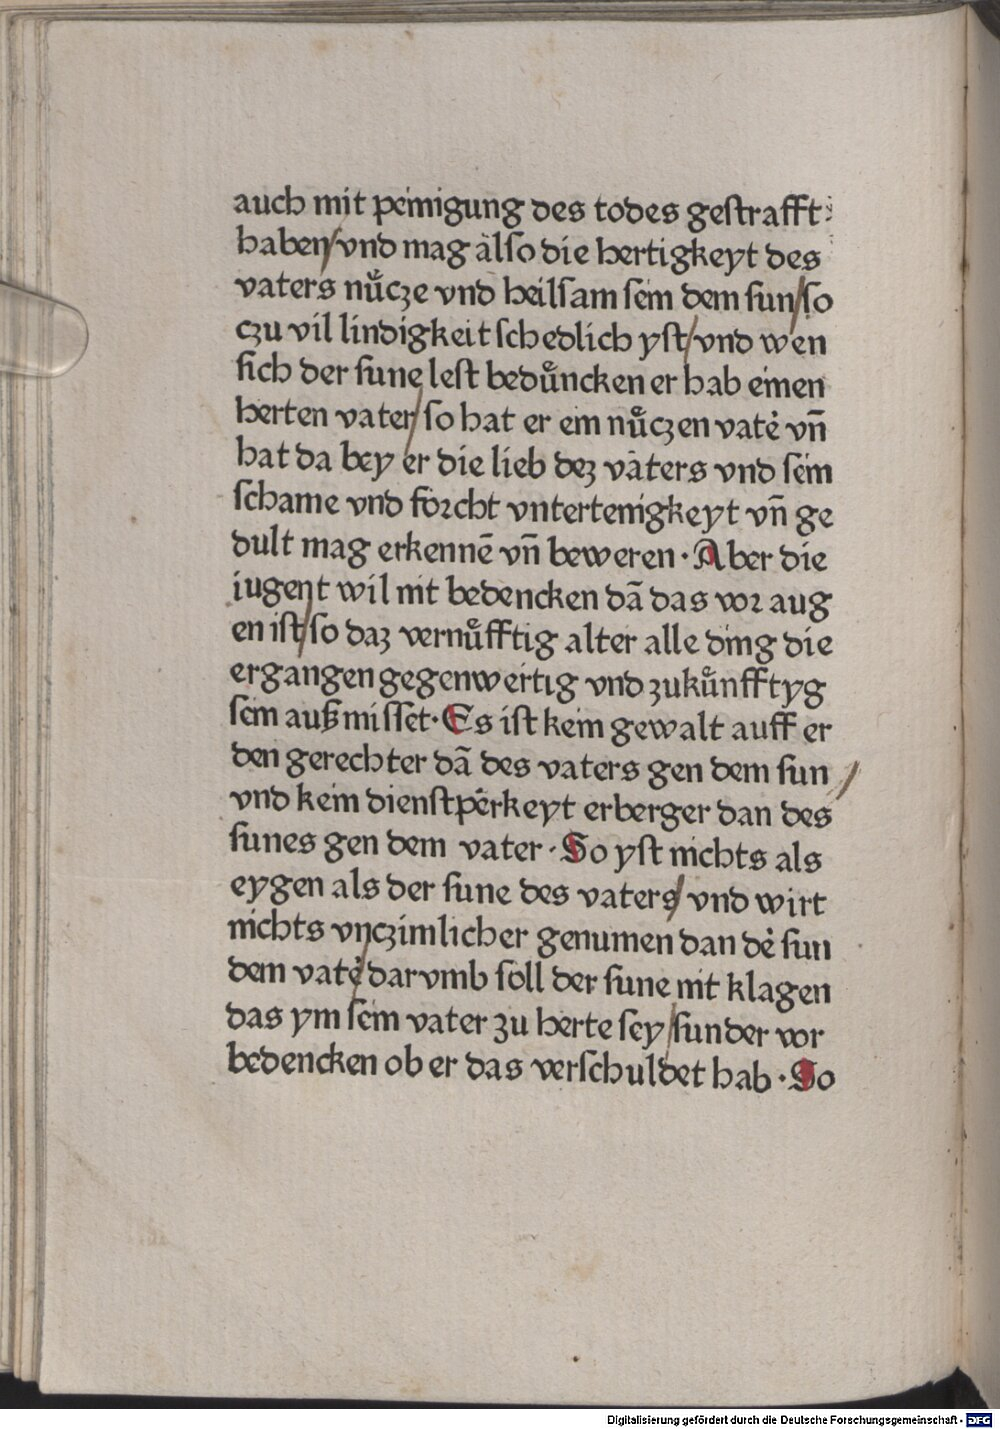 auch mit peinigung des todes gestrafft
haben/vnd mag also die hertigkeyt des
vaters nuͤcze vnd heilsam sein dem sun/so
czu vil lindigkeit schedlich yst/vnd wen
sich der sune lest beduͤncken er hab einen
herten vater/so hat er ein nuͤczen vate͛ vn̄
hat da bey er die lieb dez vaters vnd sein
schame vnd forcht vntertenigkeyt vn̄ ge
dult mag erkennē vn̄ beweren· Aber die
iugent wil nit bedencken dā das vor aug
en ist/so daz vernuͤfftig alter alle ding die
ergangen gegenwertig vnd zukuͤnfftyg
sein außmisset· Es ist kein gewalt auff er
den gerechter dā des vaters gen dem sun/
vnd kein dienstperkeyt erberger dan des
sunes gen dem vater· So yst nichts als
eygen als der sune des vaters/vnd wirt
nichts vnczimlicher genumen dan de͛ sun
dem vate͛/darvmb soll der sune nit klagen
das ym sein vater zu herte sey/sunder vor
bedencken ob er das verschuldet hab· So
Digitalisierung gefördert durch die Deutsche Forschungsgemeinschaft - DFG